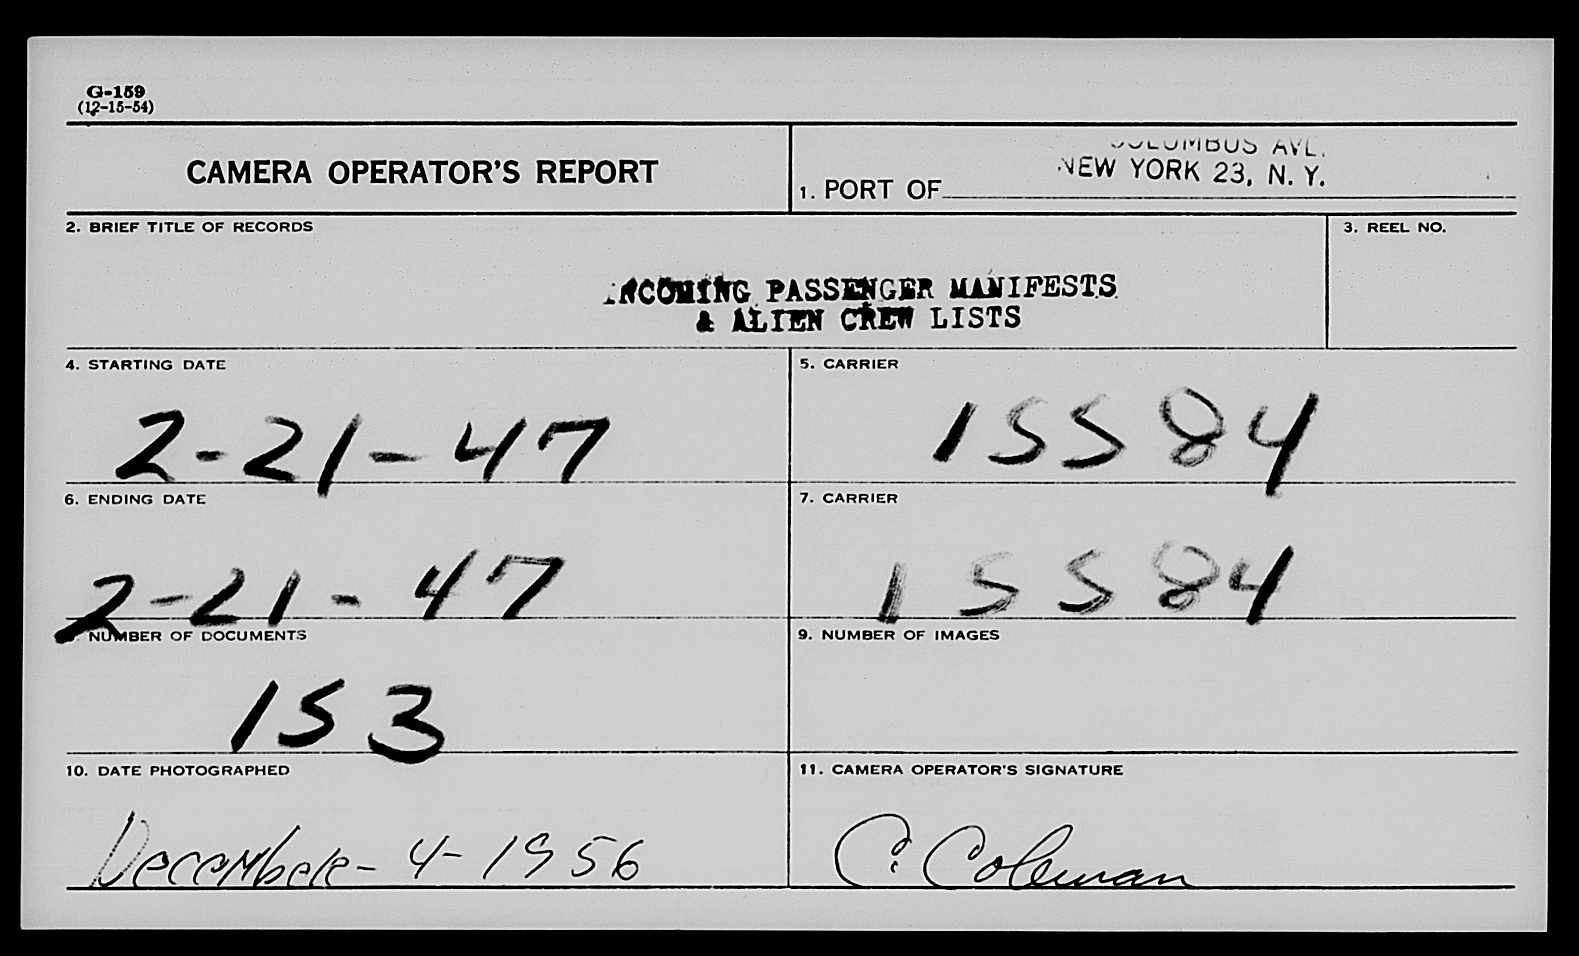 G-159
(12-15-54)
CAMERA OPERATOR'S REPORT
COLUMBUS AVE.
NEW YORK 23, N. Y.
1. PORT OF
2. BRIEF TITLE OF RECORDS
3. REEL NO.
INCOMING PASSENGER MANIFESTS
& ALIEN CREW LISTS
4. STARTING DATE
2-21-47
5. CARRIER
15584
6. ENDING DATE
2-21-47
7. CARRIER
15584
NUMBER OF DOCUMENTS
153
9. NUMBER OF IMAGES
10. DATE PHOTOGRAPHED
December-4-1956
11. CAMERA OPERATOR'S SIGNATURE
C. Coleman